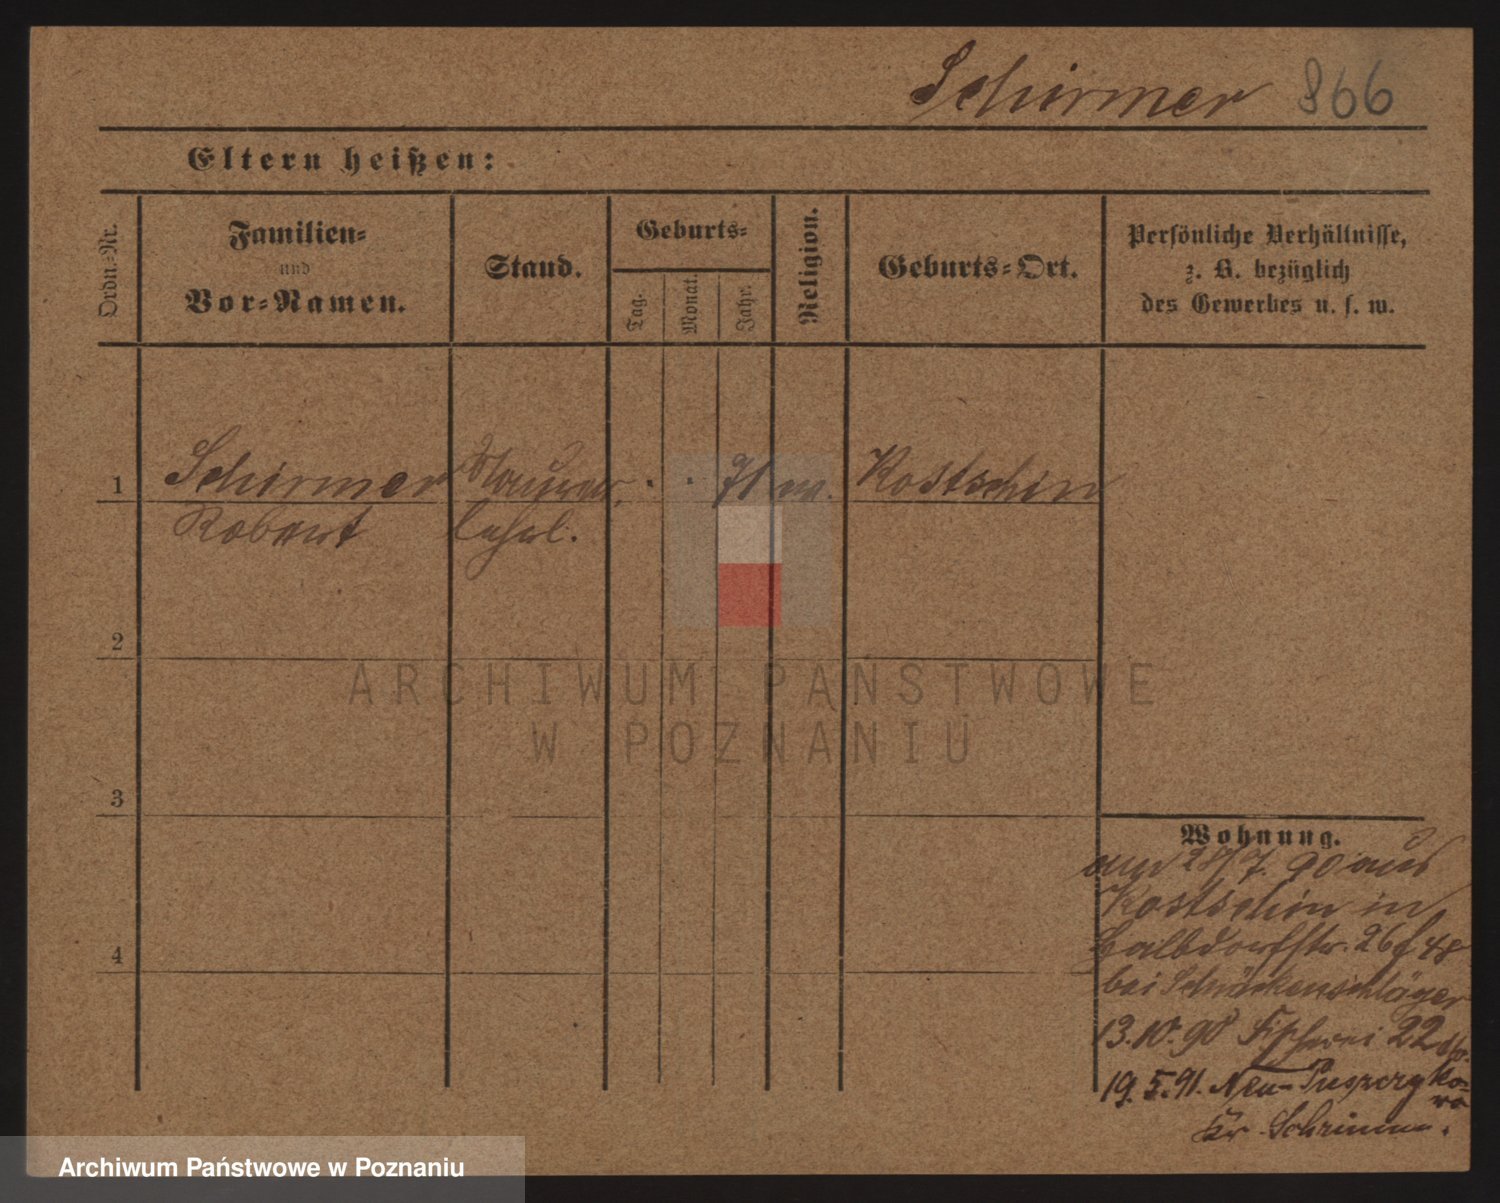 Schirmer 866
Eltern heißen:
Ordn.-Nr.
Familien-
und
Vor-Namen.
Stand.
Geburts-
Tag.
Monat.
Jahr.
Religion.
Geburts-Ort.
Persönliche Verhältnisse,
z. B. bezüglich
des Gewerbes u. s. w.
1 Schirmer Maurer 71 Kostschin
Robert lehrl.
2
ARCHIWUM PAŃSTWOWE
W POZNANIU
3
Wohnung.
28/7. 90 aus
Kostschin in
Halbdorfstr. 26 48
bei
13.10.90 Fischerei 22
19.5.91. Neu-
Kr. Schrimm.
4
Archiwum Państwowe w Poznaniu